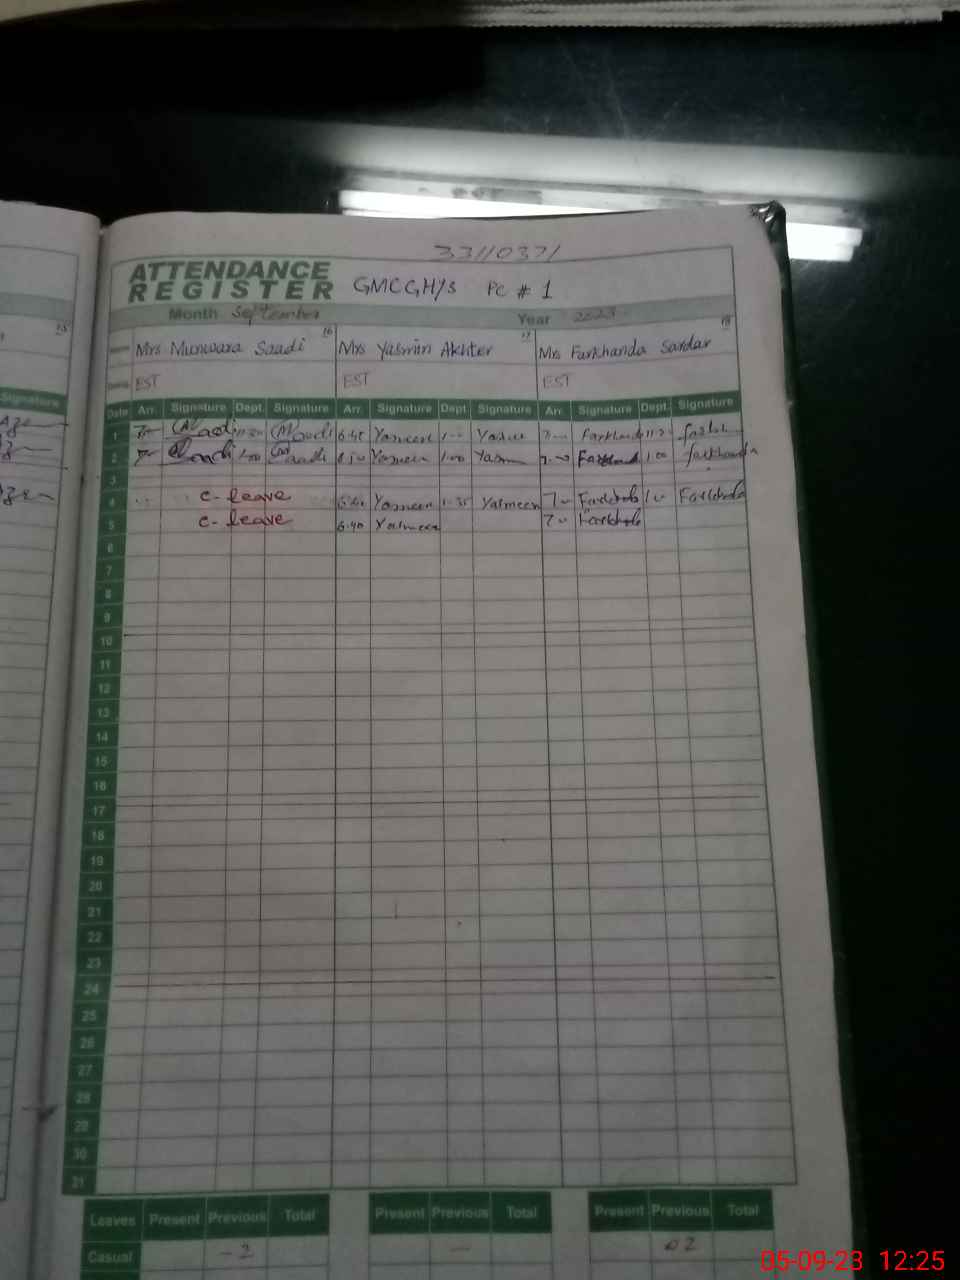 33110371
ATTENDANCE
REGISTER GMCGH/S PC # 1
Month September Year 2023
15 16 17 18
Mrs Munwara Saadi Mrs Yasmin Akhter Mrs Farkhanda Sardar
EST EST EST
Signature Date Arr. Signature Dept. Signature Arr. Signature Dept. Signature Arr. Signature Dept. Signature
1 Saadi Saadi 6.45 Yasmeen Farkhanda
2 Saadi 1.00 Saadi Yasmeen 1.00 7.00 Farkhanda 1.00 farkhanda
3
4 C- leave 6.40 Yasmeen 1.35 Yasmeen
5 C- leave 6.40 Yasmeen
6
7
8
9
10
11
12
13
14
15
16
17
18
19
20
21
22
23
24
25
26
27
28
29
30
31
Leaves Present Previous Total Present Previous Total Present Previous Total
Casual -2 - 02
05-09-23 12:25